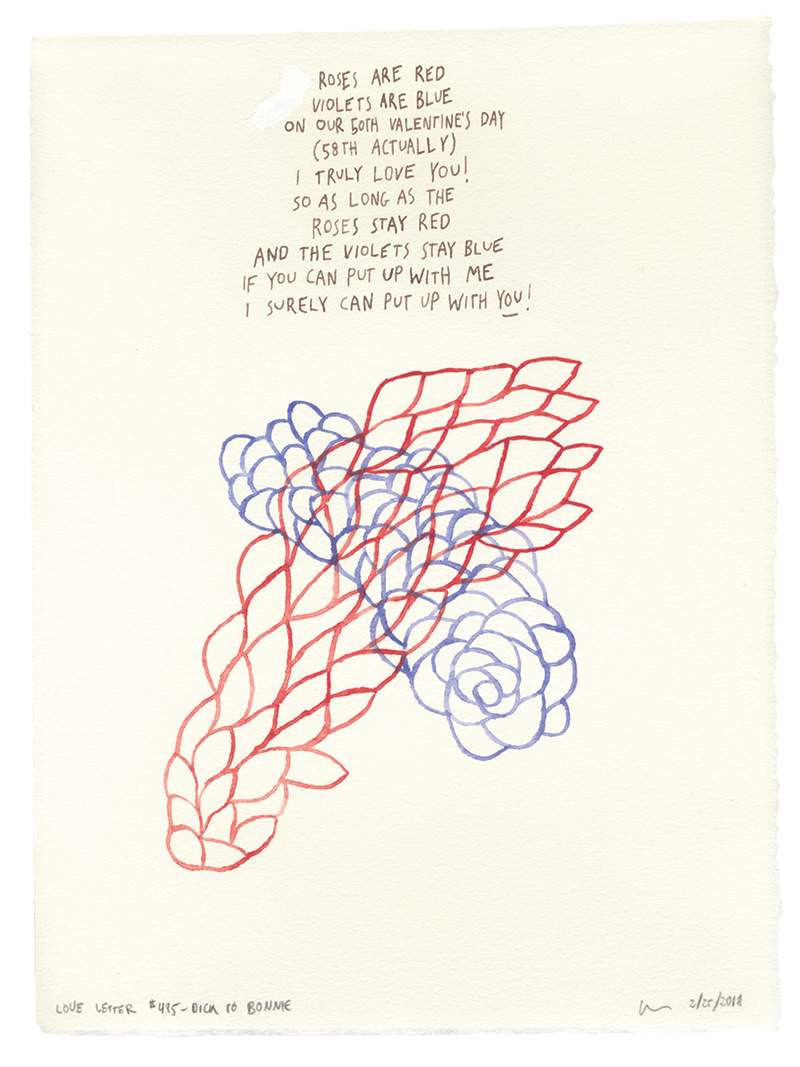 ROSES ARE RED
VIOLETS ARE BLUE
ON OUR 50TH VALENTINE'S DAY
(58TH ACTUALLY)
I TRULY LOVE YOU!
SO AS LONG AS THE
ROSES STAY RED
AND THE VIOLETS STAY BLUE
IF YOU CAN PUT UP WITH ME
I SURELY CAN PUT UP WITH YOU!
LOVE LETTER #495-DICK TO BONNIE
2/25/2018